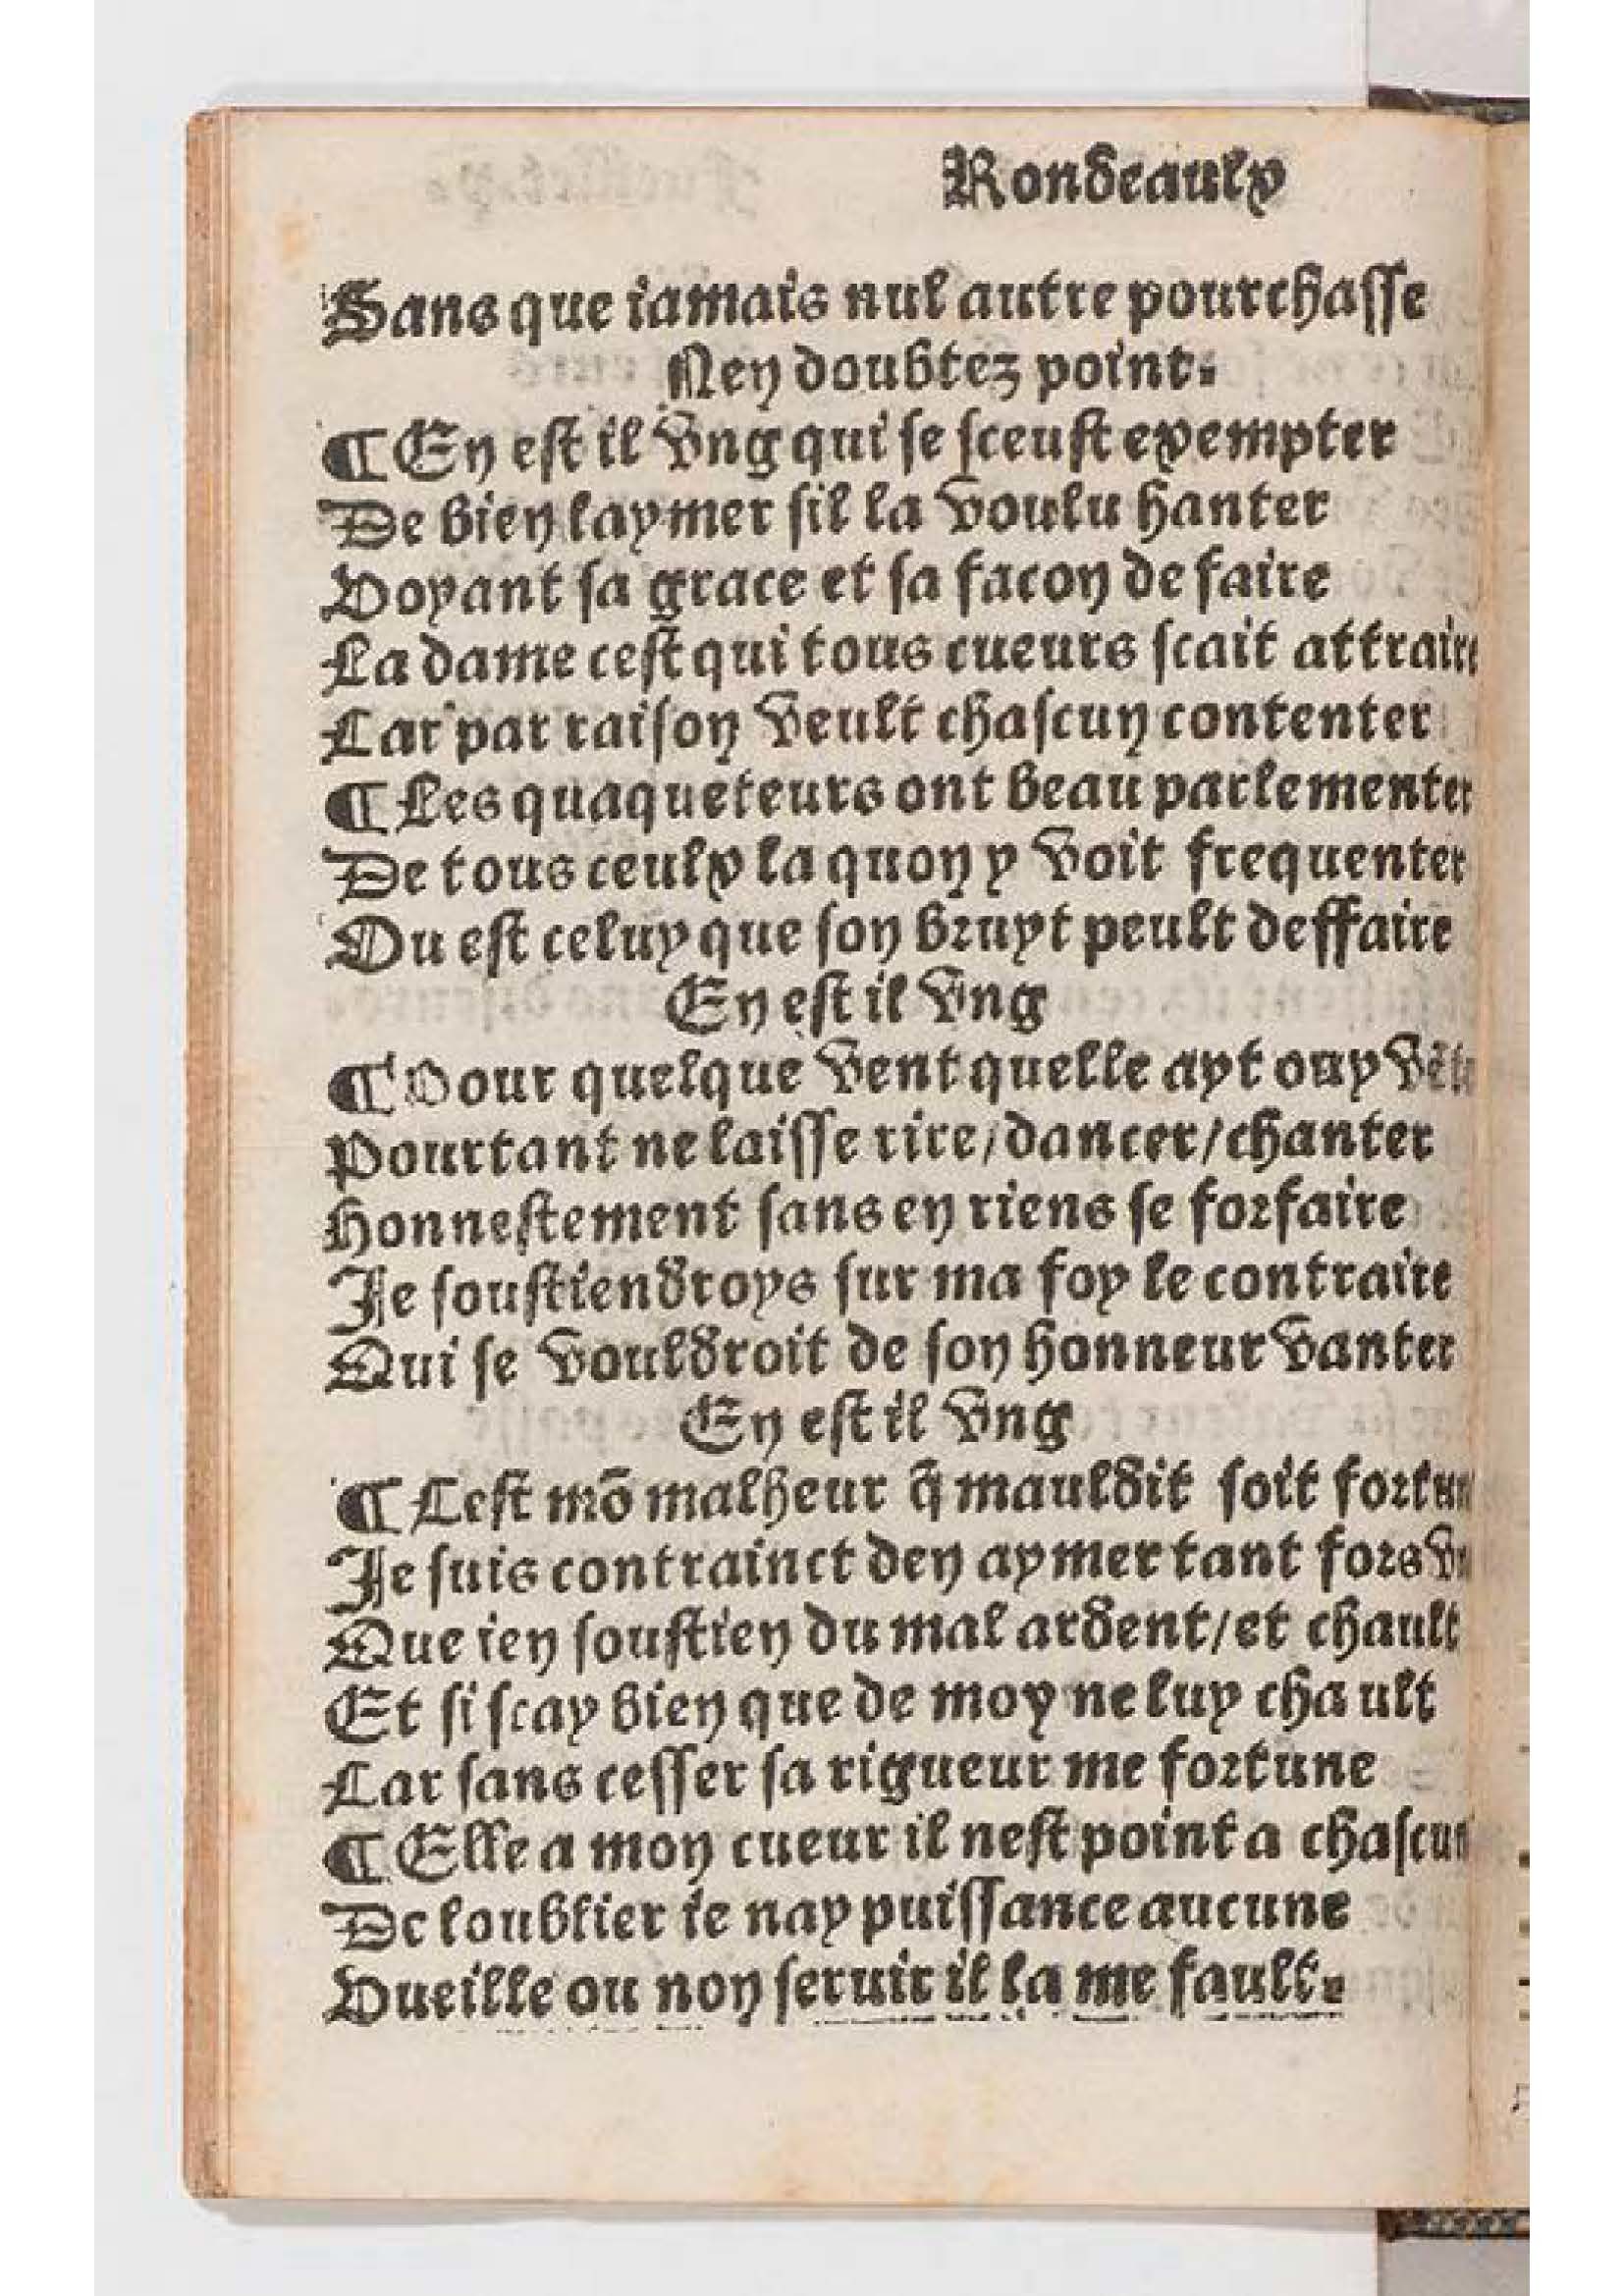 Rondeaulx
Sans que iamais nul autre pourchasse
Nen doubtez point.
¶ En est il vng qui se sceust exempter
De bien laymer sil la voulu hanter
Voyant sa grace et sa facon de faire
La dame cest qui tous cueurs scait attraire
Car par raison veult chascun contenter
¶ Les quaqueteurs ont beau parlementer
De tous ceulx la quon y voit frequenter
Ou est celuy que son bruyt peult deffaire
En est il vng
¶ Pour quelque vent quelle ayt ouy
Pourtant ne laisse rire/dancer/chanter
Honnestement sans en riens se forfaire
Je soustiendroys sur ma foy le contraire
Qui se vouldroit de son honneur vanter
En est il vng
¶ Cest mō malheur q̄ mauldit soit
Je suis contrainct den aymer tant fors
Que ien soustien du mal ardent/et chault
Et si scay bien que de moy ne luy chault
Car sans cesser sa rigueur me fortune
¶ Elle a mon cueur il nest point a chascun
De loublier ie nay puissance aucune
Vueille ou non seruir il la me fault.